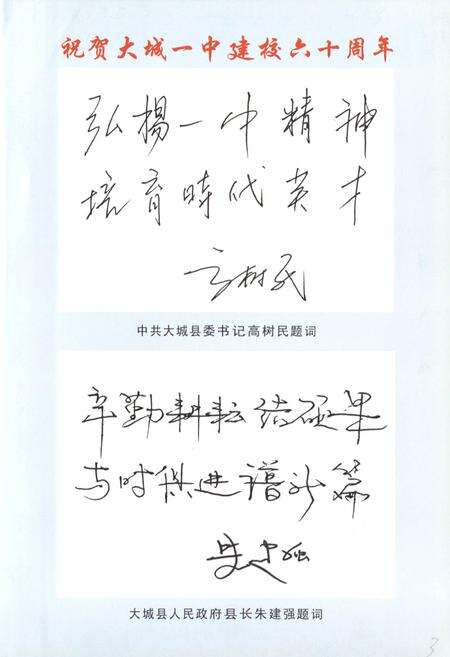 祝贺大城一中建校六十周年
弘揚一中精神
培育時代英才
高树民
中共大城县委书记高树民题词
辛勤耕耘结硕果
与时俱进谱新篇
朱建强
大城县人民政府县长朱建强题词
3